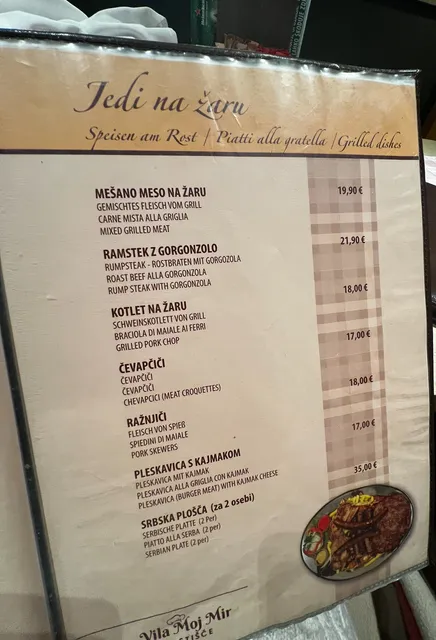 Jedi na žaru
Speisen am Rost | Piatti alla gratella | Grilled dishes
MEŠANO MESO NA ŽARU 19,90 €
GEMISCHTES FLEISCH VOM GRILL
CARNE MISTA ALLA GRIGLIA
MIXED GRILLED MEAT
RAMSTEK Z GORGONZOLO 21,90 €
RUMPSTEAK - ROSTBRATEN MIT GORGOZOLA
ROAST BEEF ALLA GORGONZOLA
RUMP STEAK WITH GORGONZOLA
KOTLET NA ŽARU 18,00 €
SCHWEINSKOTLETT VON GRILL
BRACIOLA DI MAIALE AI FERRI
GRILLED PORK CHOP
ČEVAPČIČI 17,00 €
ČEVAPČIČI
ČEVAPČIČI
CHEVAPCICI (MEAT CROQUETTES)
RAŽNJIČI 18,00 €
FLEISCH VON SPIEß
SPIEDINI DI MAIALE
PORK SKEWERS
PLESKAVICA S KAJMAKOM 17,00 €
PLESKAVICA MIT KAJMAK
PLESKAVICA ALLA GRIGLIA CON KAJMAK
PLESKAVICA (BURGER MEAT) WITH KAJMAK CHEESE
SRBSKA PLOŠČA (za 2 osebi) 35,00 €
SERBISCHE PLATTE (2 Per)
PIATTO ALLA SERBA (2 per)
SERBIAN PLATE (2 per)
Vila Moj Mir